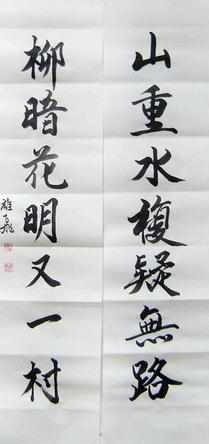 山重水複疑無路
柳暗花明又一村